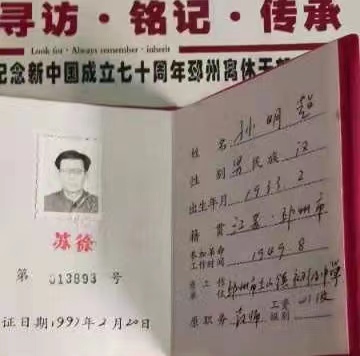 寻访·铭记·传承
Look for · Always remember · inherit
纪念新中国成立七十周年邳州离休干部
苏徐
第 013893 号
证日期:1997年2月20日
姓名 孙明
性别 男 民族 汉
出生年月 1933.2
籍贯 江苏·邳州市
参加革命工作时间 1949.8
原工作单位 邳州市 镇 中学
原职务 教师 工资级别 级